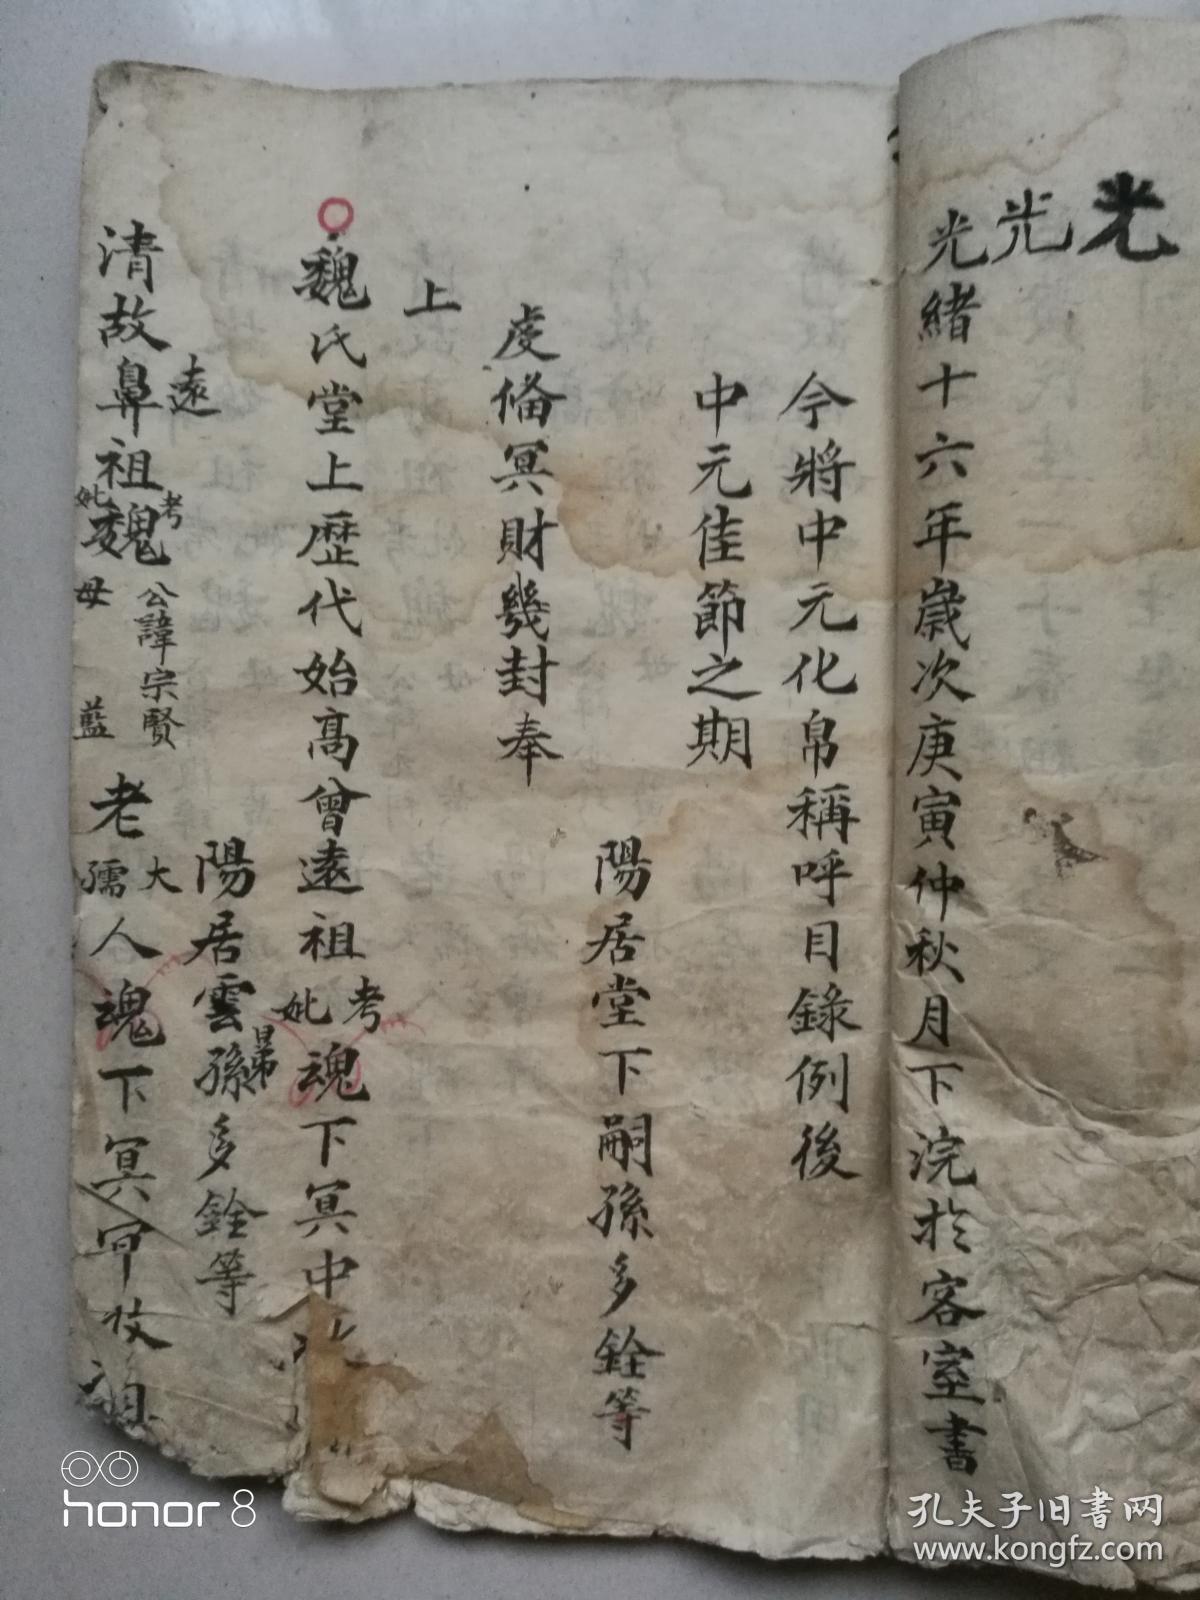 光
光
光緒十六年歲次庚寅仲秋月下浣於客室書
今將中元化帛稱呼目錄例後
中元佳節之期
陽居堂下嗣孫多銓等
虔俻冥財幾封奉
上
魏氏堂上歷代始高曾遠祖考妣魂下冥中
陽居雲孫多銓等
清故鼻遠祖考妣魏公諱宗賢母藍老大孺人魂下冥中收領
honor 8
孔夫子旧书网
www.kongfz.com